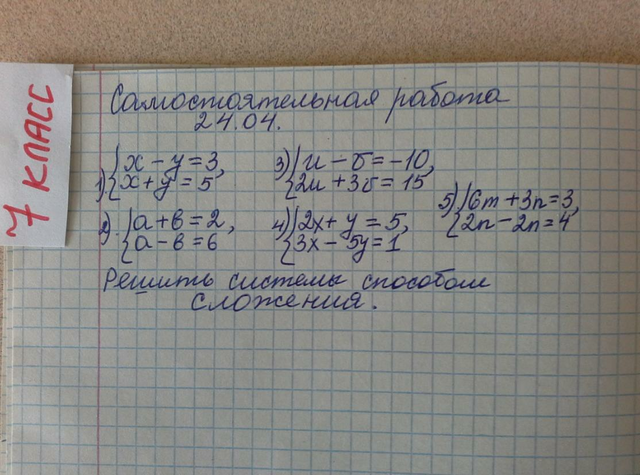 7 КЛАСС
Самостоятельная работа
24.04.
1) { x - y = 3,
x + y = 5
2) { a + b = 2,
a - b = 6
3) { u - v = -10,
2u + 3v = 15
4) { 2x + y = 5,
3x - 5y = 1
5) { 6m + 3n = 3,
2n - 2n = 4
Решить системы способом
сложения.